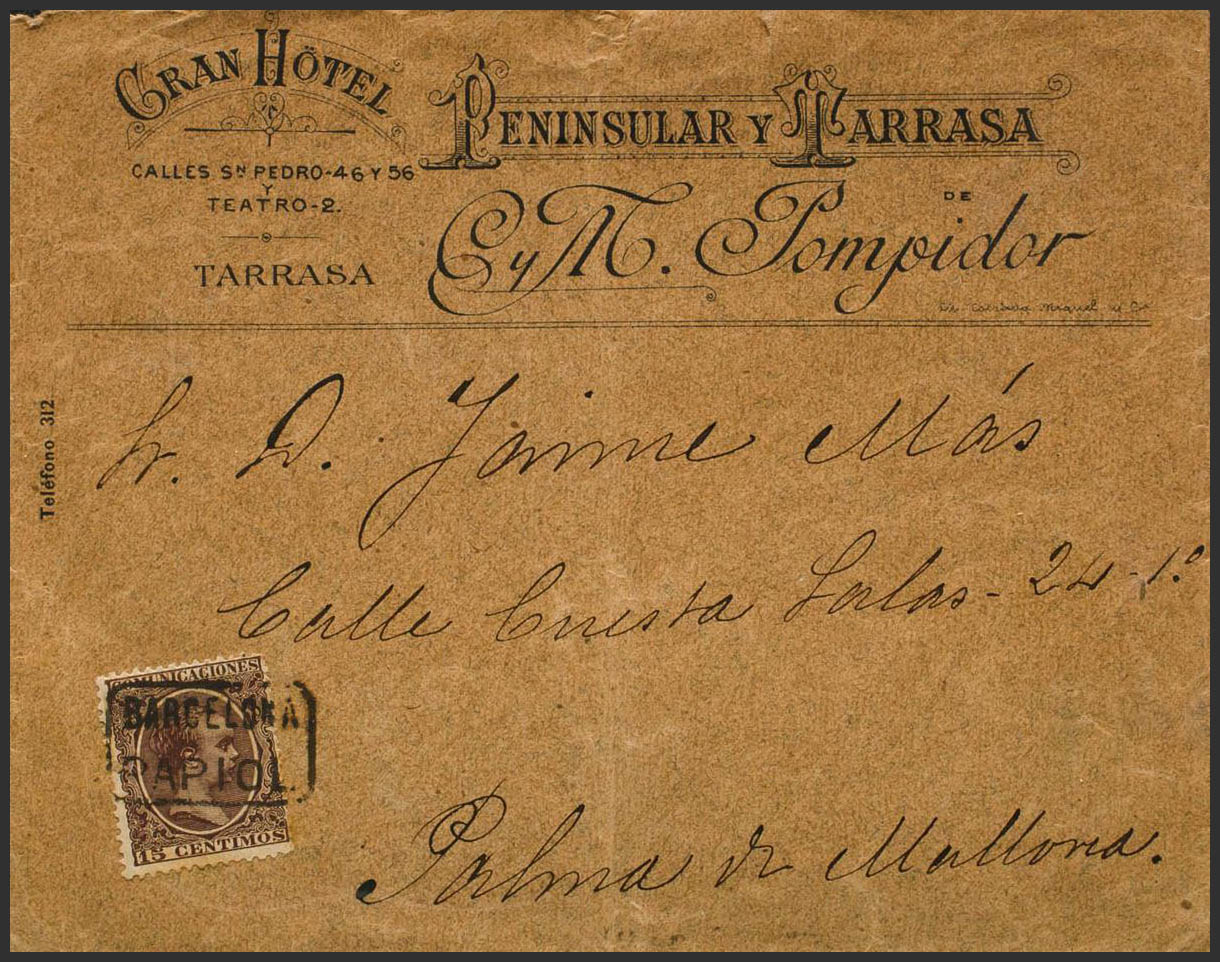 GRAN HÖTEL
PENINSULAR Y TARRASA
CALLES Sⁿ PEDRO-46 Y 56
Y
TEATRO-2.
TARRASA
DE
C y M. Pompidor
Miquel y Cª
Teléfono 312
Sr. D. Jaime Más
Calle Cuesta Salas - 24 - 1.º
COMUNICACIONES
BARCELONA
PAPIOL
15 CENTIMOS
Palma de Mallorca.